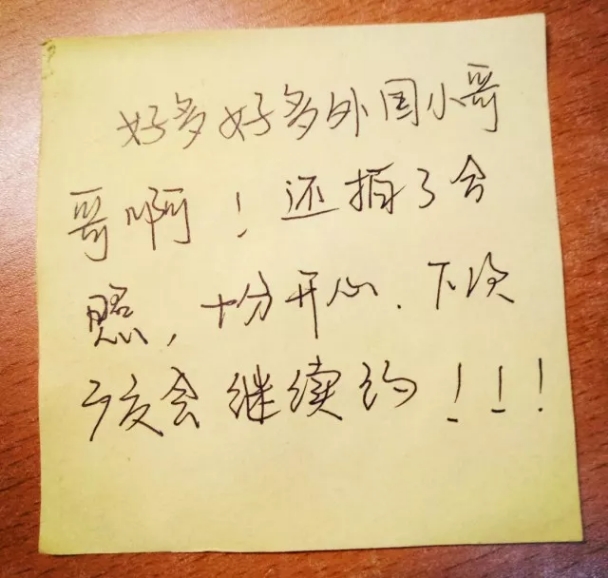 好多好多外国小哥
哥啊！还拍了合
照，十分开心.下次
广交会继续约！！！